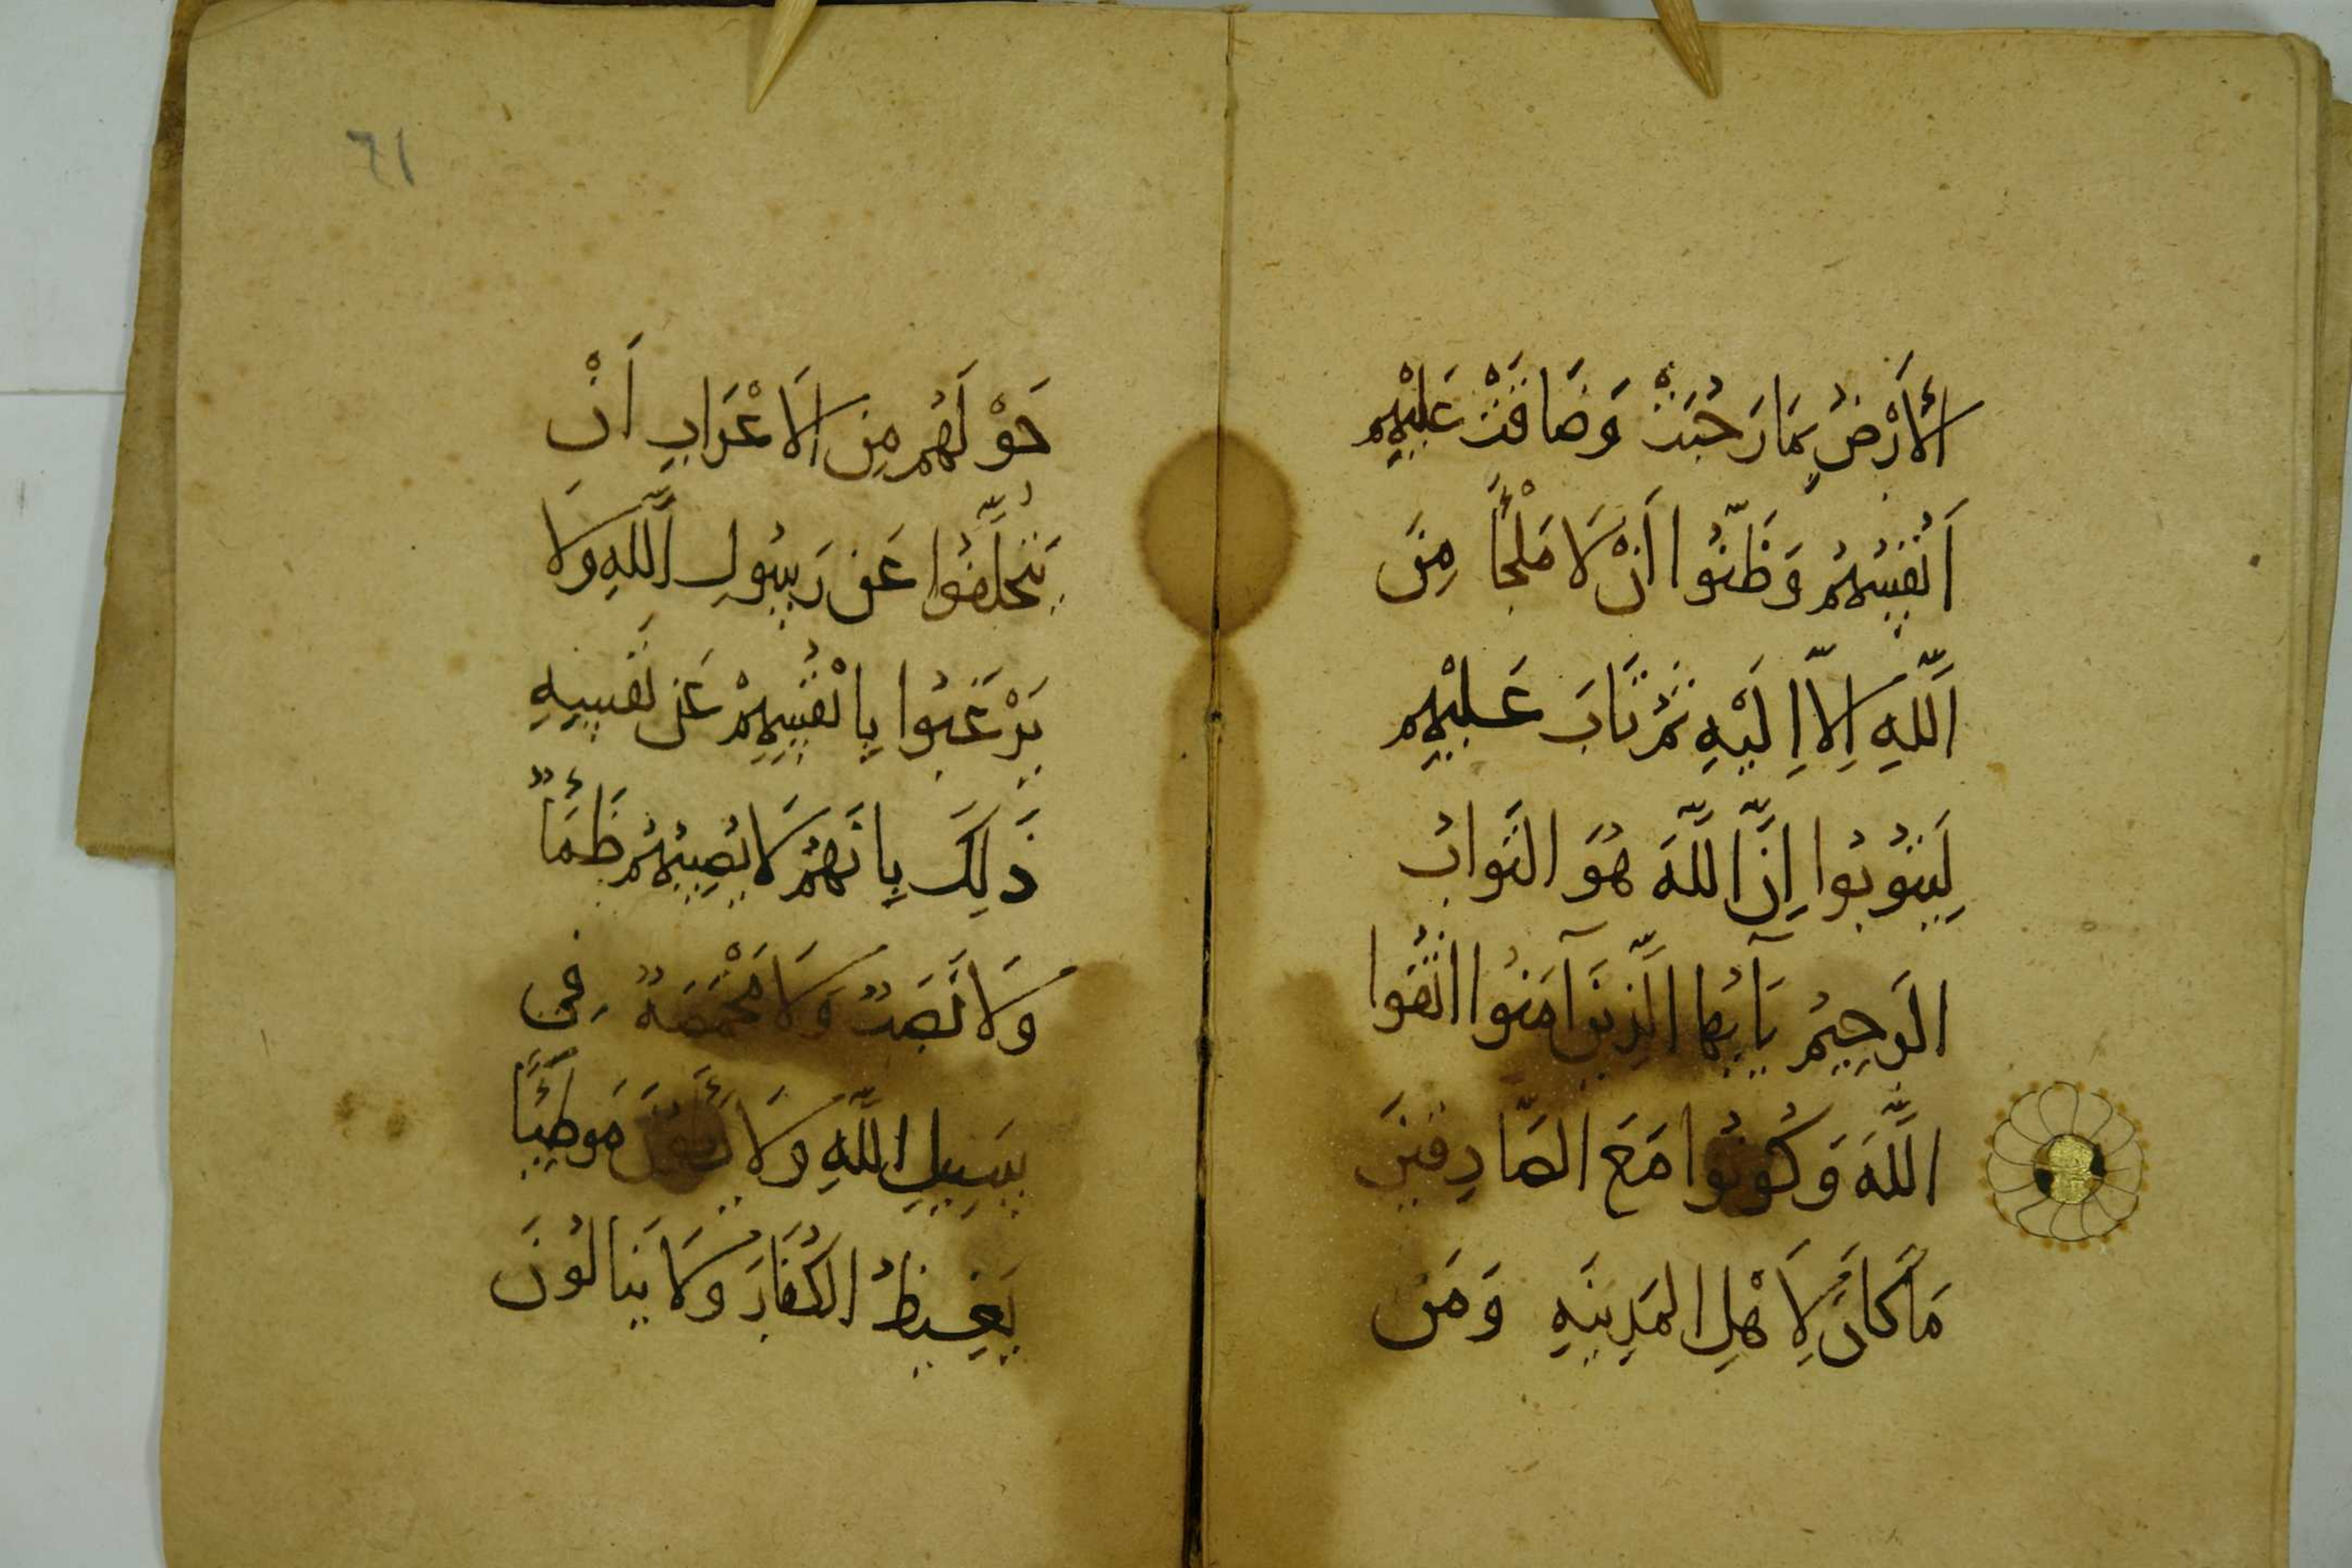 الْأَرْضُ بِمَا رَحُبَتْ وَضَاقَتْ عَلَيْهِم
اَنْفُسُهُمْ وَظَنُّوا اَنْ لَا مَلْجَأَ مِنَ
اللَّهِ اِلَّا اِلَيْهِ ثُمَّ تَابَ عَلَيْهِم
لِيَتُوبُوا اِنَّ اللَّهَ هُوَ التَّوَابُ
الرَحِيمُ يَآ اَيُّهَا الَّذِينَ آمَنُوا اتَّقُوا
اللَّهَ وَكُونُوا مَعَ الصَّادِقِينَ
مَا كَانَ لِاَهْلِ المَدِينَةِ وَمَن
٦١
حَوْلَهُم مِنَ الَاعْرَابِ اَنْ
يَتَخَلَّفُوا عَن رَسُولِ اللَّهِ وَلَا
يَرْغَبُوا بِاَنْفُسِهِمْ عَن نَفْسِهِ
ذَلِكَ بِاَنَهُمْ لَا يُصِيبُهُمْ ظَمَأٌ
وَلَا نَصَبٌ وَلَا مَخْمَصَةٌ فِى
سَبِيلِ اللَّهِ وَلَا يَطَؤُنَ مَوطِئًا
يَغِيظُ الكُفَارَ وَلَا يَنَالُونَ